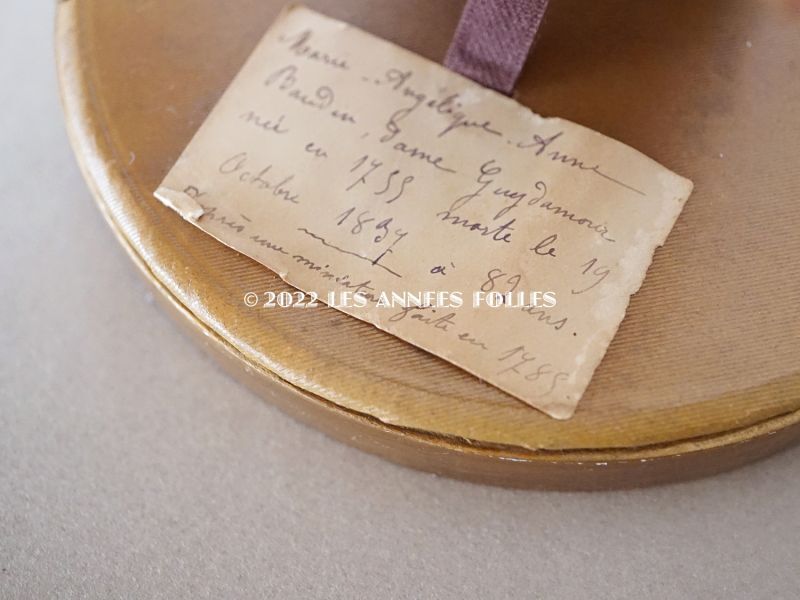 Marie-Angélique-Anne
Baudin, dame Guydamour
née en 1755 morte le 19
Octobre 1837 à 82 ans.
D'après une miniature faite en 1785
©2022 LES ANNEES FOLLES